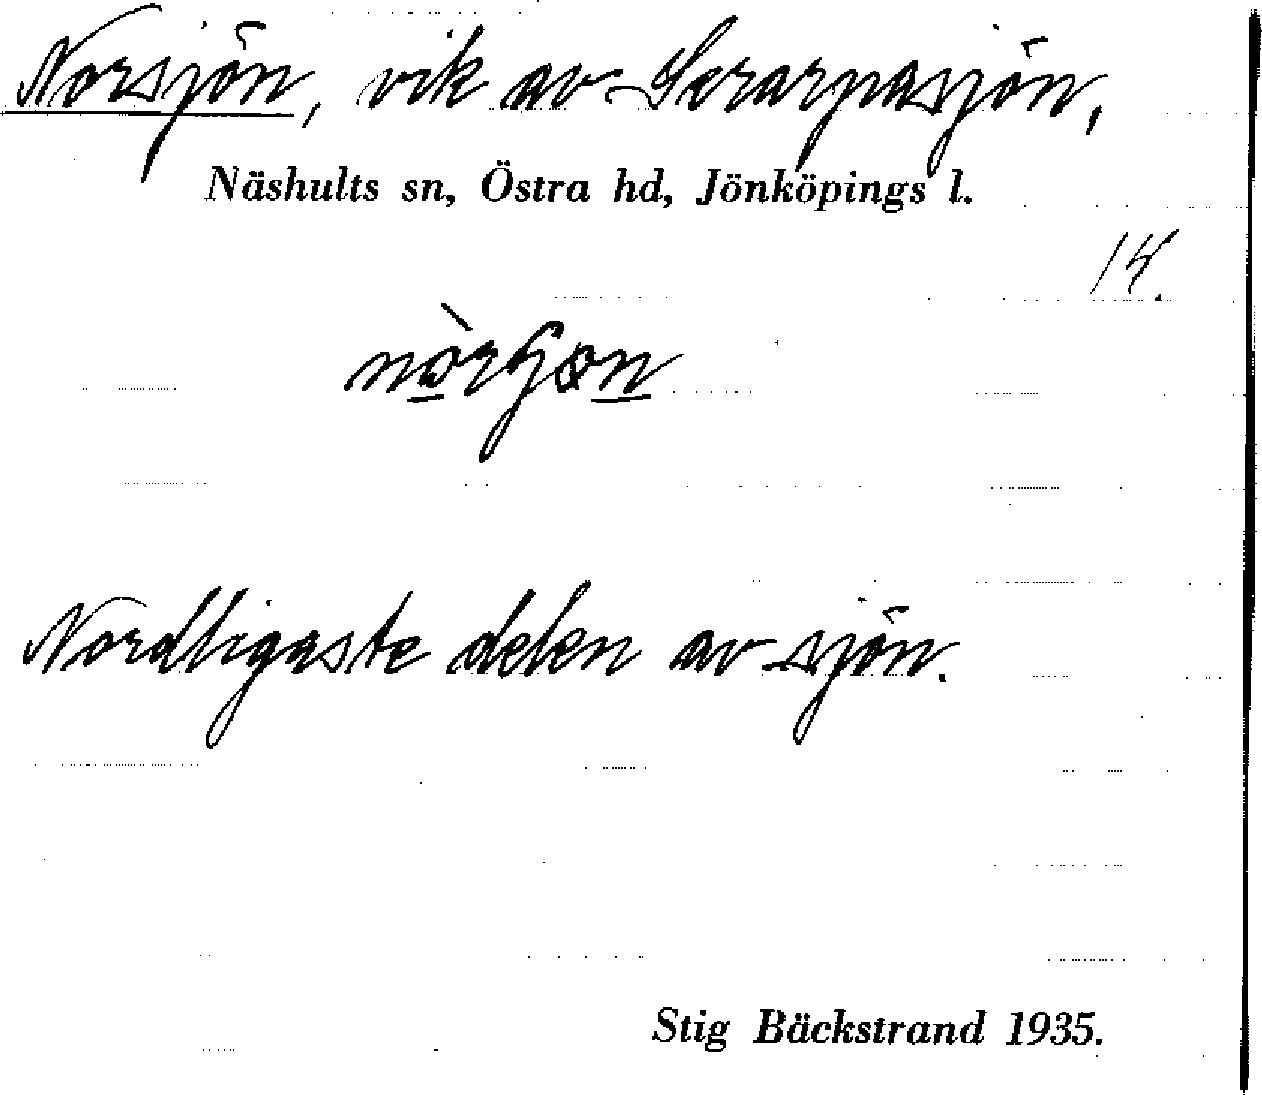 Norsjön, vik av Serarpasjön,
Näshults sn, Östra hd, Jönköpings l.
14.
Nordligaste delen av sjön.
Stig Bäckstrand 1935.